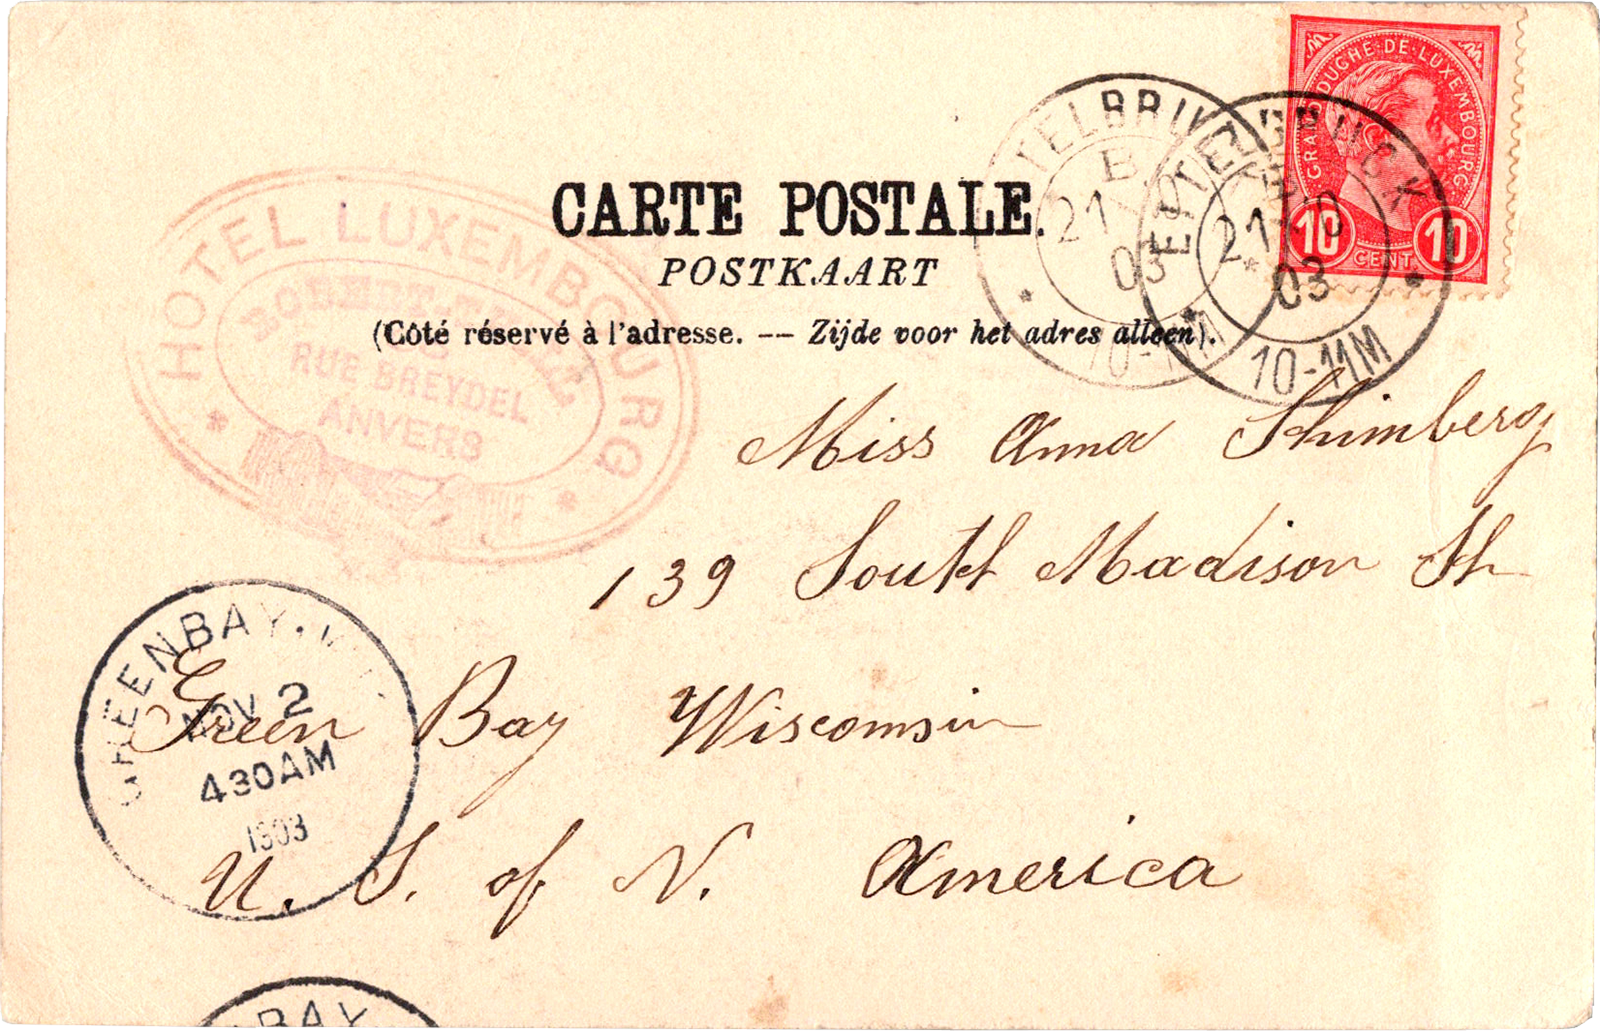 GRAND DUCHÉ DE LUXEMBOURG.
10 CENT 10
TELBRU
B
21
03
10-11M
ETTELBRUCK
21 10
03
10-11M
CARTE POSTALE.
POSTKAART
(Côté réservé à l'adresse. — Zijde voor het adres alleen).
HOTEL LUXEMBOURG
RUE BREYDEL
ANVERS
Miss Anna Shimberg
139 South Madison St
Green Bay Wisconsin
U. S. of N. America
GREENBAY.
NOV 2
430AM
1903
BAY